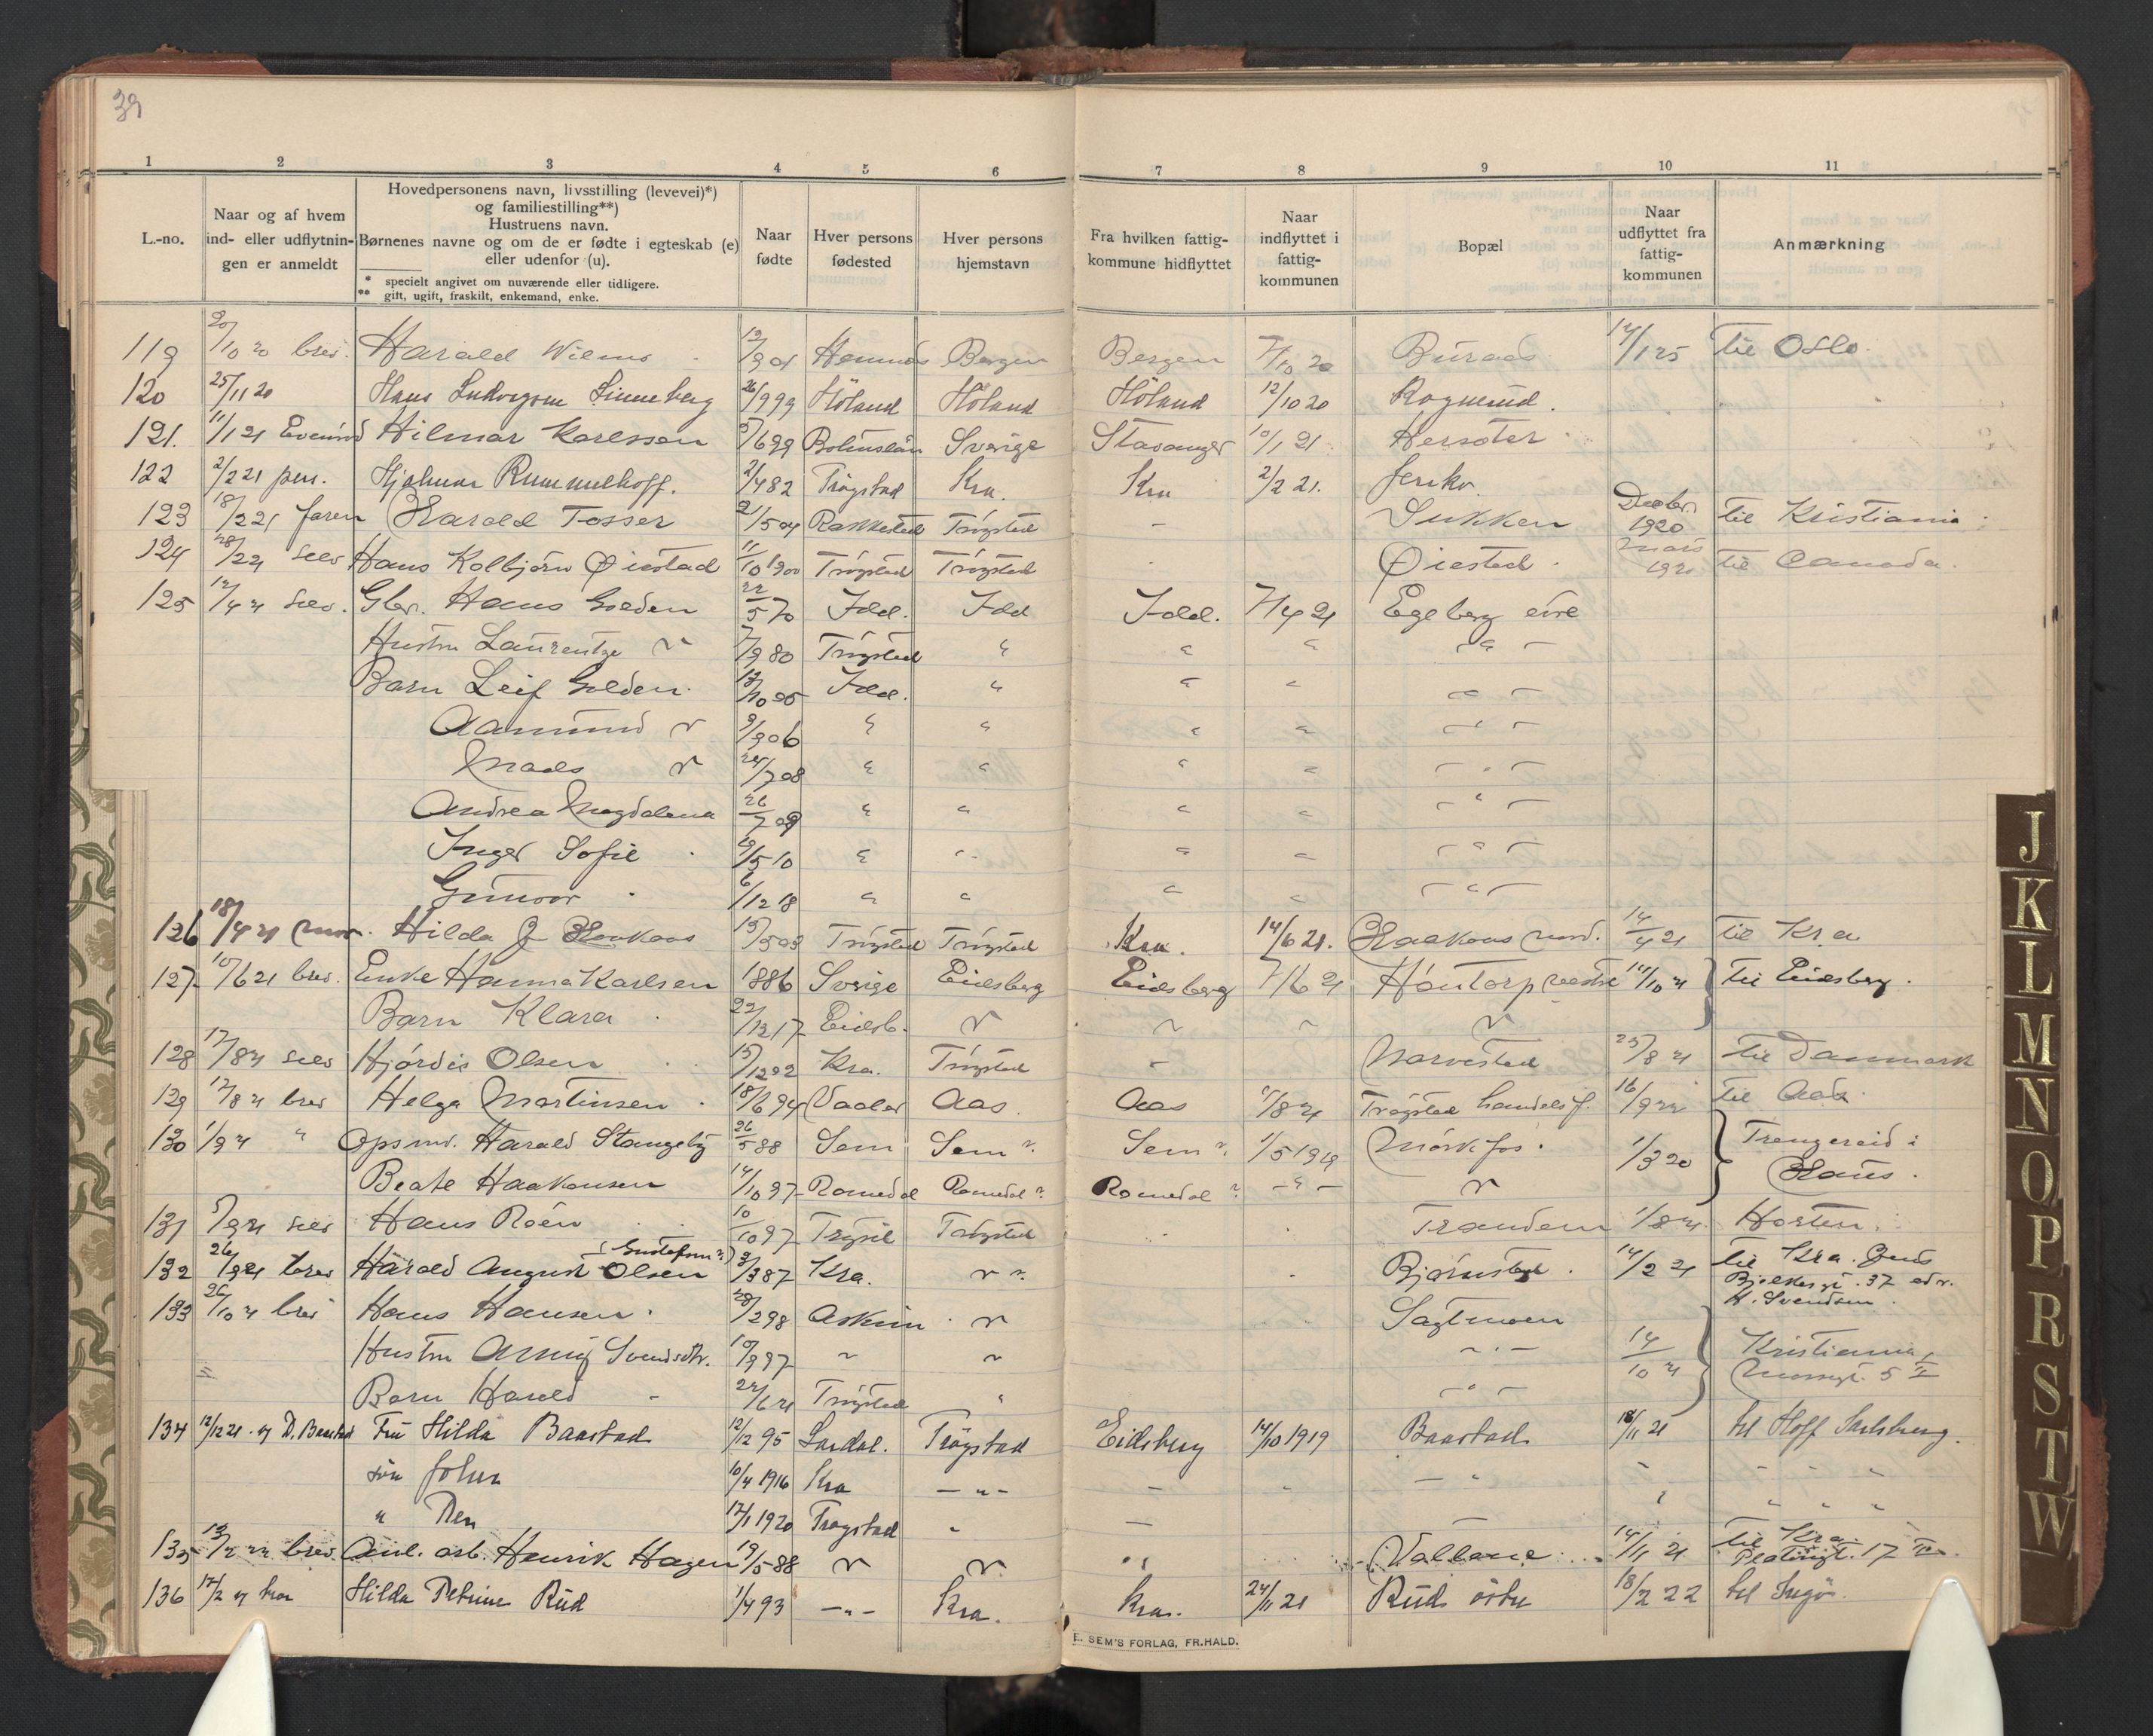 39
1 2 3 4 5 6 7 8 9 10 11
L.-no.
Naar og af hvem ind- eller udflytnin- gen er anmeldt
Hovedpersonens navn, livsstilling (levevei)*)
og familiestilling**)
Hustruens navn.
Børnenes navne og om de er fødte i egteskab (e)
eller udenfor (u).
* specielt angivet om nuværende eller tidligere.
** gift, ugift, fraskilt, enkemand, enke.
Naar fødte
Hver persons fødested
Hver persons hjemstavn
Fra hvilken fattig- kommune hidflyttet
Naar indflyttet i fattig- kommunen
Bopæl
Naar udflyttet fra fattig- kommunen
Anmærkning
119 20/10 20 brev. Harald Wilms Bergen Bergen 7/10 20 Til Oslo.
120 25/11 20 Hans Ludvigsen 26/9 99 Höland Höland Höland 12/10 20 Rognerud.
121. 11/1 21 Hilmar Karlssen 5/6 99 Sverige Stavanger 10/1 21 Hersæter
122 2/2 21 pers. Hjalmar Rummelhoff. 2/4 82 Trögstad Kra. Kra 2/2 21.
123 18/2 21 faren Harald Tosser 2/5 04 Rakkestad Trögstad – Sukken Decbr. 1920 Til Kristiania
124 selv Hans Kolbjörn Øiestad 11/10 1900 Trögstad Trögstad Øiestad. mars 1921 til Canada.
125 12/4 21 selv. Gbr. Hans Golden 22/5 70 Idd. Idd Idd. 7/4 21 Egeberg øvre
Hustru Laurentze 7/9 80 Trögstad " " " "
Barn Leif Golden. Idd. " " " "
Aamund 9/9 06 " " " " "
Mads 24/7 08 " " " " "
Andrea Magdalena 26/7 09 " " " " "
Inger Sofie 5 10 " " " " "
Gunvor 6/12 18 " " " " "
126 18/4 21 Hilda J Haakaas 03 Trögstad Trögstad Kra. 14/6 21. Haakaas 14/4 21 Til Kra
127 10/6 21 brev. Enke Hanna Karlsen 1886 Sverige Eidsberg Eidsberg 7/6 21 Høntorp vestre Til Eidsberg.
Barn Klara 22/12 17 Eidsb.
128 17/8 21 selv Hjördis Olsen 15/12 92 Kra. Trögstad – Narvestad 25/8 21 Til Danmark
129 17/8 21 brev Helga Martinsen 18/6 94 Vaaler Aas. Aas Trögstad handelsf. Til Aas.
130 1/9 21 " Opsmd. Harald Stangeby 26/5 88 Sem Sem ?. Sem ?. 1/5 1919 Mörkfos. 1/3 20 Trengereid i
Beate Haakonsen 14/10 97 Romedal Romedal ?. Romedal ?. – " – Haus.
131 5/9 21 selv Hans Roén 10/10 97 Trysil Trögstad Trandem 1/8 21. Horten.
132 26/9 21 brev Harald August Olsen (Gustafson?) 3/3 87 Kra. Bjørnstad. 14/2 21 til Kra.
Bjelkesgt. 37 adr.
H. Svendsen.
133 26/10 21 brev Hans Hansen. 28/2 98 Askim. Sagtmoen
Hustru Svendsdtr. 10/9 97 14/10 21 Kristiania,
Barn Harald 6 21 Trögstad
134 12/12 21. af D. Baastad Fru Hilda Baastad 12/12 95 Lardal. Trögstad Eidsberg 14/10 1919 Baastad 18/11 21 til Hoff Jarlsberg.
sön John 10/4 1916 Kra – " –
" Per 17/1 1920 Trøgstad "
135 brev Anl. arb. Henrik Hagen 19/5 88 14/11 21 Til Kra.
136 17/2 af Hilda Petrine Rud 1/4 93 – " – Kra. Kra. 24/11 21 Rud östre 18/2 22
E. SEM'S FORLAG, FR.HALD.
J
K
L
M
N
O
P
R
S
T
W